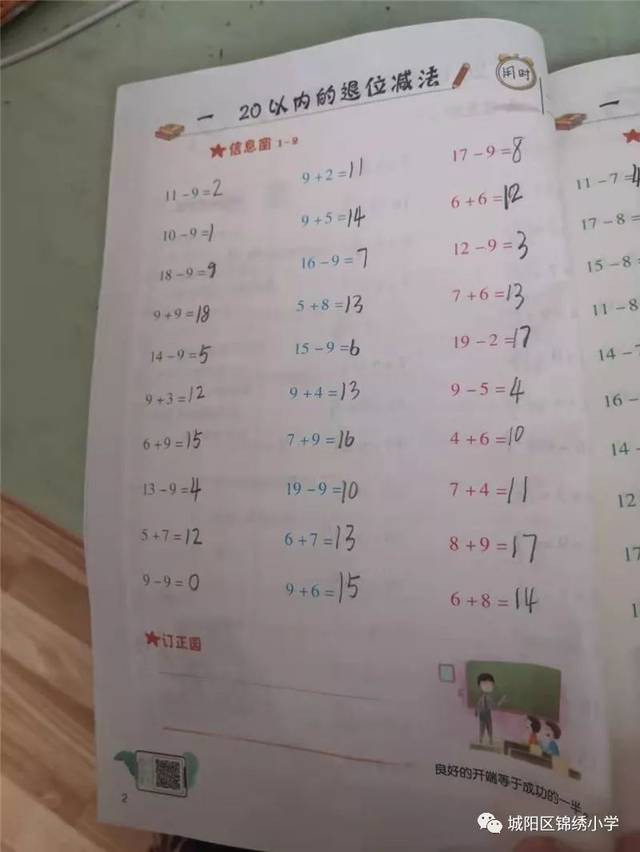 一 20以内的退位减法
用时
★信息窗 1-9
11-9=2
10-9=1
18-9=9
9+9=18
14-9=5
9+3=12
6+9=15
13-9=4
5+7=12
9-9=0
9+2=11
9+5=14
16-9=7
5+8=13
15-9=6
9+4=13
7+9=16
19-9=10
6+7=13
9+6=15
17-9=8
6+6=12
12-9=3
7+6=13
19-2=17
9-5=4
4+6=10
7+4=11
8+9=17
6+8=14
★订正园
良好的开端等于成功的一半
2
一
11-7=4
17-8=
15-8=
11-8
14-7
16-
14-
12
17
1
城阳区锦绣小学